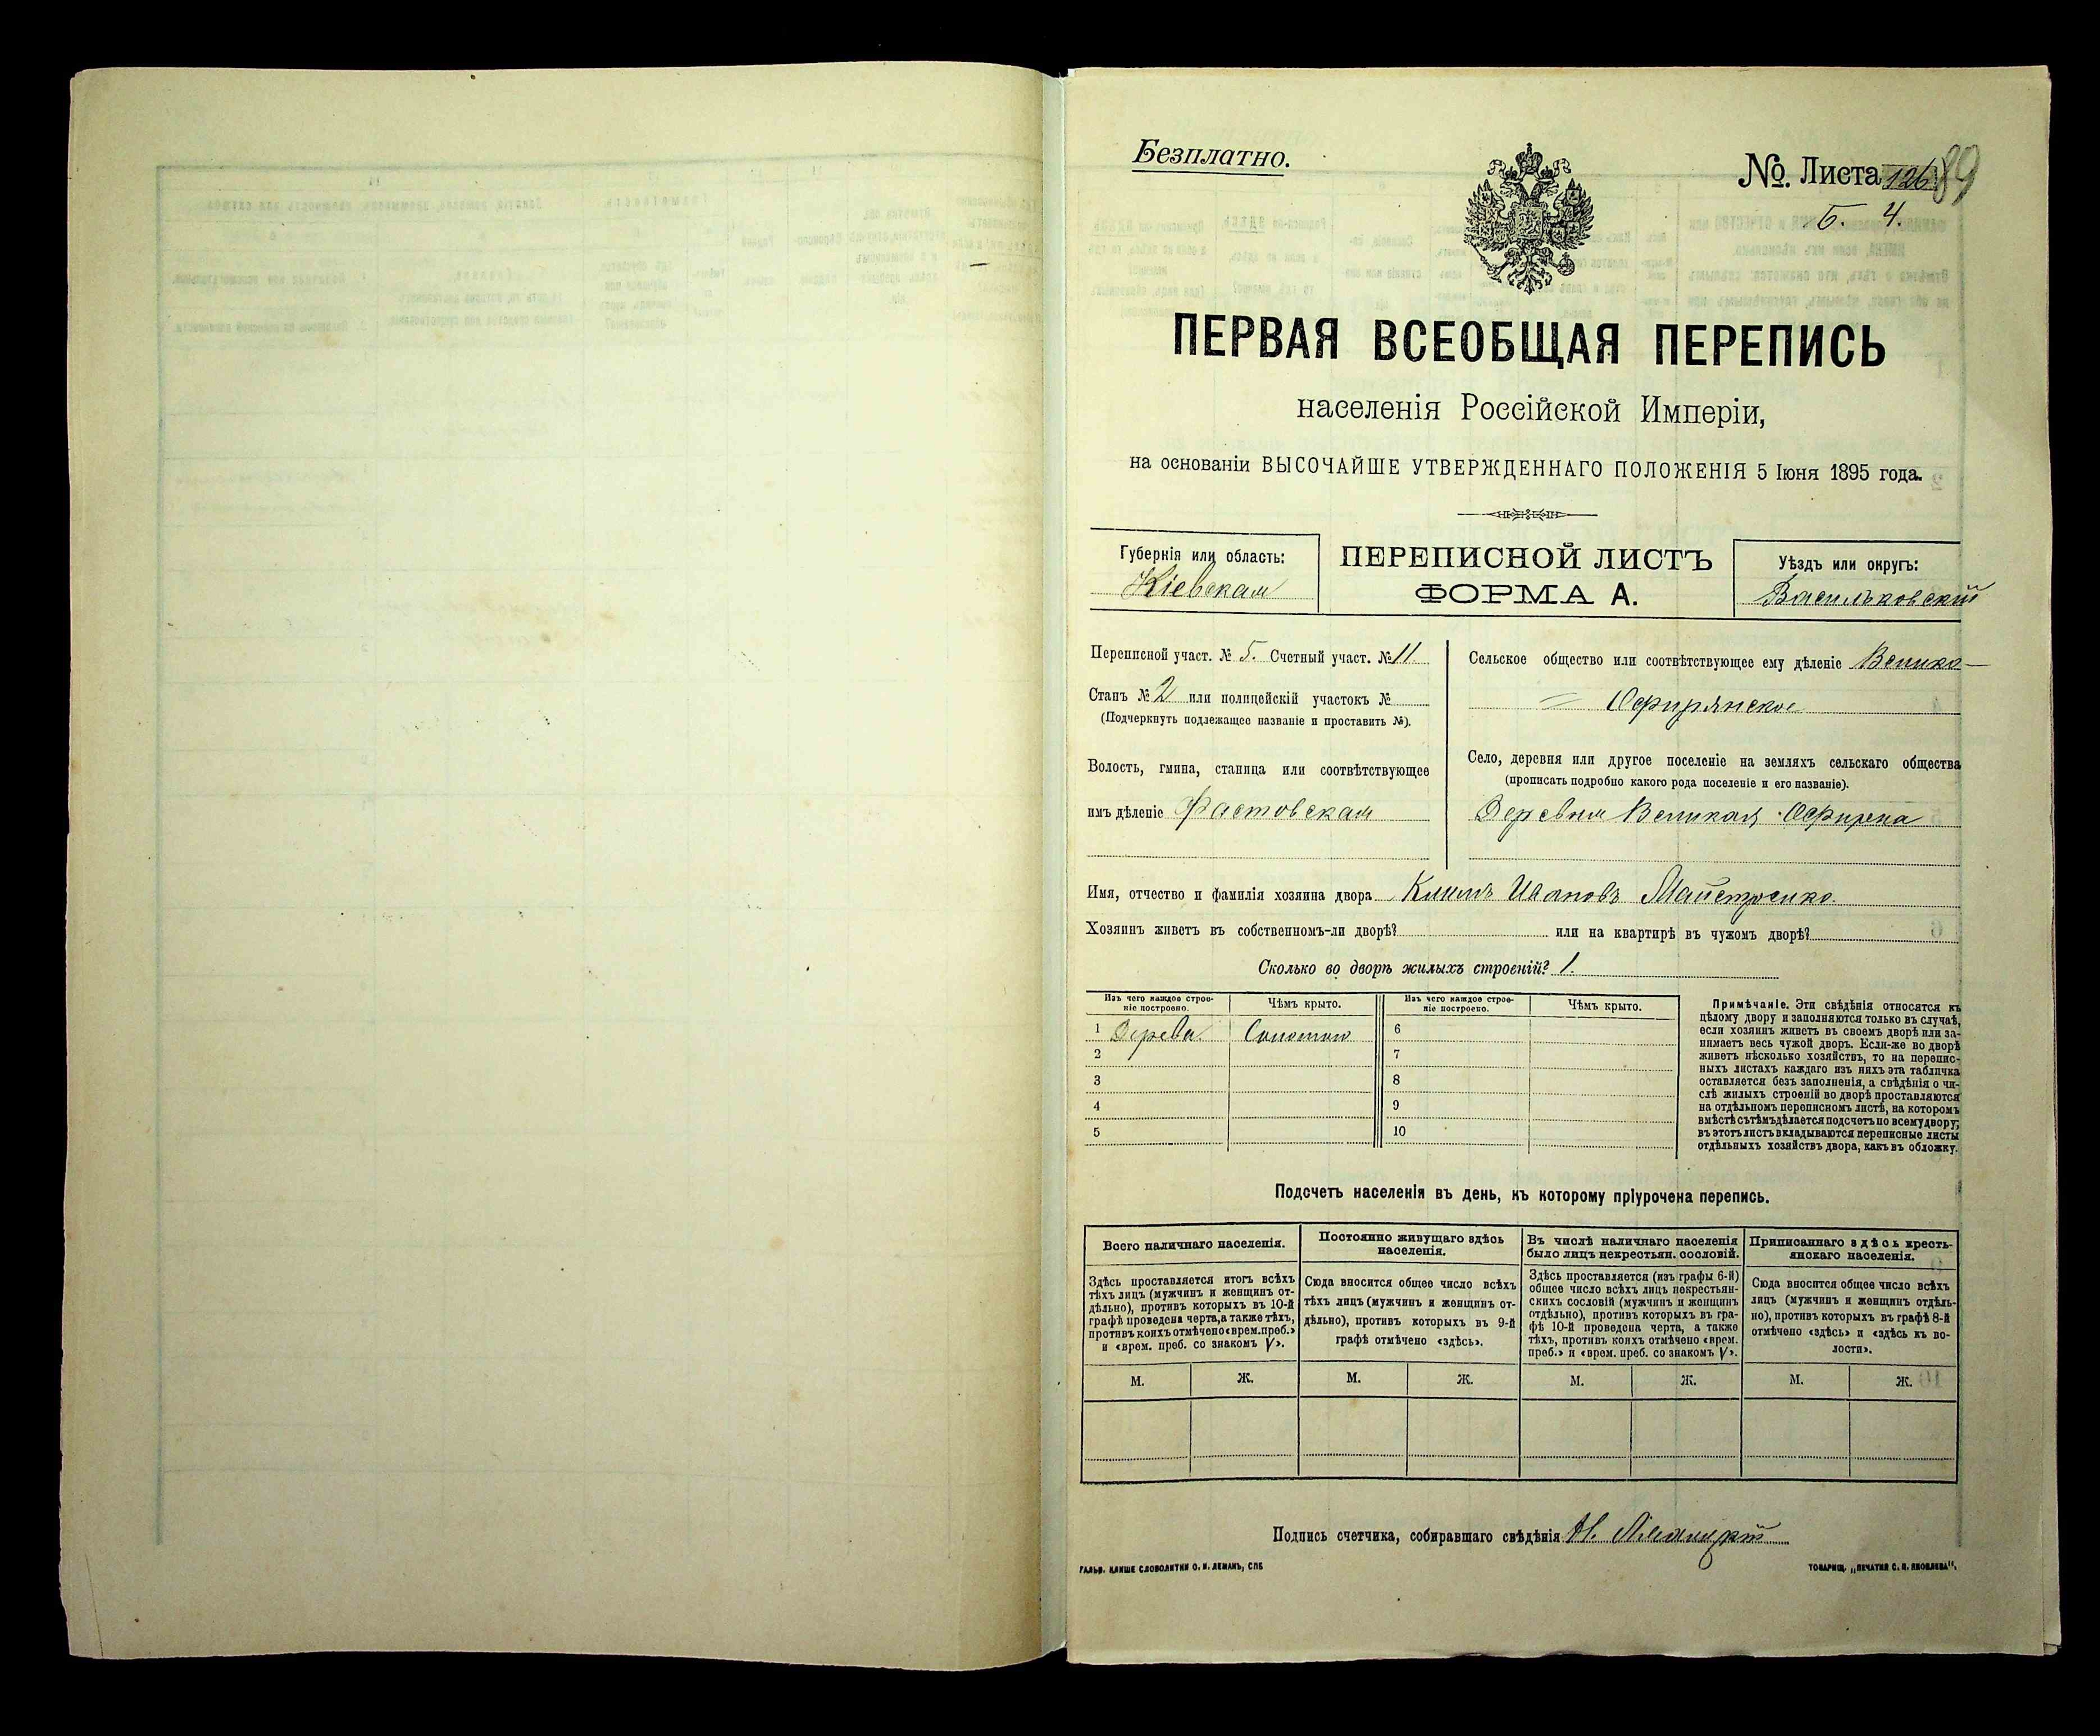 Безплатно.
№. Листа 126 89
Б. 4.
ПЕРВАЯ ВСЕОБЩАЯ ПЕРЕПИСЬ
населенія Россійской Имперіи,
на основаніи ВЫСОЧАЙШЕ УТВЕРЖДЕННАГО ПОЛОЖЕНІЯ 5 Іюня 1895 года.
Губернія или область:
Кіевская
ПЕРЕПИСНОЙ ЛИСТЪ
ФОРМА А.
Уѣздъ или округъ:
Васильковскій
Переписной участ. № 5. Счетный участ. № 11
Станъ № 2 или полицейскій участокъ №
(Подчеркнуть подлежащее названіе и проставить №).
Волость, гмина, станица или соотвѣтствующее
имъ дѣленіе Фастовская
Сельское общество или соотвѣтствующее ему дѣленіе Велико-
Офирянское
Село, деревня или другое поселеніе на земляхъ сельскаго общества
(прописать подробно какого рода поселеніе и его названіе).
Деревня Великая Офирна
Имя, отчество и фамилія хозяина двора Климъ Ивановъ Майстренко
Хозяинъ живетъ въ собственномъ-ли дворѣ? или на квартирѣ въ чужомъ дворѣ?
Сколько во дворѣ жилыхъ строеній? 1.
Изъ чего каждое строе-
ніе построено.
Чѣмъ крыто.
Изъ чего каждое строе-
ніе построено.
Чѣмъ крыто.
1 Дерева Соломою 6
2 7
3 8
4 9
5 10
Примѣчаніе. Эти свѣдѣнія относятся къ
цѣлому двору и заполняются только въ случаѣ,
если хозяинъ живетъ въ своемъ дворѣ или за-
нимаетъ весь чужой дворъ. Если-же во дворѣ
живетъ нѣсколько хозяйствъ, то на перепис-
ныхъ листахъ каждаго изъ нихъ эта табличка
оставляется безъ заполненія, а свѣдѣнія о чи-
слѣ жилыхъ строеній во дворѣ проставляются
на отдѣльномъ переписномъ листѣ, на которомъ
вмѣстѣ съ тѣмъ дѣлается подсчетъ по всему двору;
въ этотъ листъ вкладываются переписные листы
отдѣльныхъ хозяйствъ двора, какъ въ обложку.
Подсчетъ населенія въ день, къ которому пріурочена перепись.
Всего наличнаго населенія.
Здѣсь проставляется итогъ всѣхъ
тѣхъ лицъ (мужчинъ и женщинъ от-
дѣльно), противъ которыхъ въ 10-й
графѣ проведена черта, а также тѣхъ,
противъ коихъ отмѣчено «врем. преб.»
и «врем. преб. со знакомъ V».
Постоянно живущаго здѣсь
населенія.
Сюда вносится общее число всѣхъ
тѣхъ лицъ (мужчинъ и женщинъ от-
дѣльно), противъ которыхъ въ 9-й
графѣ отмѣчено «здѣсь».
Въ числѣ наличнаго населенія
было лицъ некрестьян. сословій.
Здѣсь проставляется (изъ графы 6-й)
общее число всѣхъ лицъ некрестьян-
скихъ сословій (мужчинъ и женщинъ
отдѣльно), противъ которыхъ въ гра-
фѣ 10-й проведена черта, а также
тѣхъ, противъ коихъ отмѣчено «врем.
преб.» и «врем. преб. со знакомъ V».
Приписаннаго здѣсь кресть-
янскаго населенія.
Сюда вносится общее число всѣхъ
лицъ (мужчинъ и женщинъ отдѣль-
но), противъ которыхъ въ графѣ 8-й
отмѣчено «здѣсь» и «здѣсь къ во-
лости».
М. Ж. М. Ж. М. Ж. М. Ж.
Подпись счетчика, собиравшаго свѣдѣнія Н.
ГАЛЬВ. КЛИШЕ СЛОВОЛИТНИ О. И. ЛЕМАНЪ, СПБ
ТОВАРИЩ. „ПЕЧАТНЯ С. П. ЯКОВЛЕВА“.